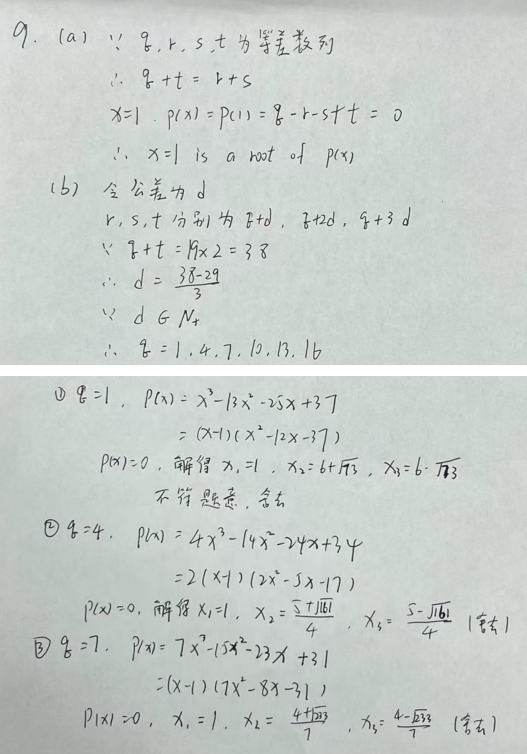 9. (a) ∵ q, r, s, t 为等差数列
∴ q+t = r+s
x=1. p(x) = p(1) = q-r-s+t = 0
∴ x=1 is a root of p(x)
(b) 令公差为 d
r, s, t 分别为 q+d, q+2d, q+3d
∵ q+t = 19×2 = 38
∴ d = (38-2q)/3
∵ d∈N₊
∴ q = 1, 4, 7, 10, 13, 16
① q=1, p(x) = x³-13x²-25x+37
= (x-1)(x²-12x-37)
p(x)=0, 解得 x₁=1, x₂=6+√73, x₃=6-√73
不符题意, 舍去
② q=4, p(x) = 4x³-14x²-24x+34
= 2(x-1)(2x²-5x-17)
p(x)=0, 解得 x₁=1, x₂=(5+√161)/4, x₃=(5-√161)/4 (舍去)
③ q=7. p(x) = 7x³-15x²-23x+31
= (x-1)(7x²-8x-31)
p(x)=0, x₁=1, x₂=(4+√233)/7, x₃=(4-√233)/7 (舍去)